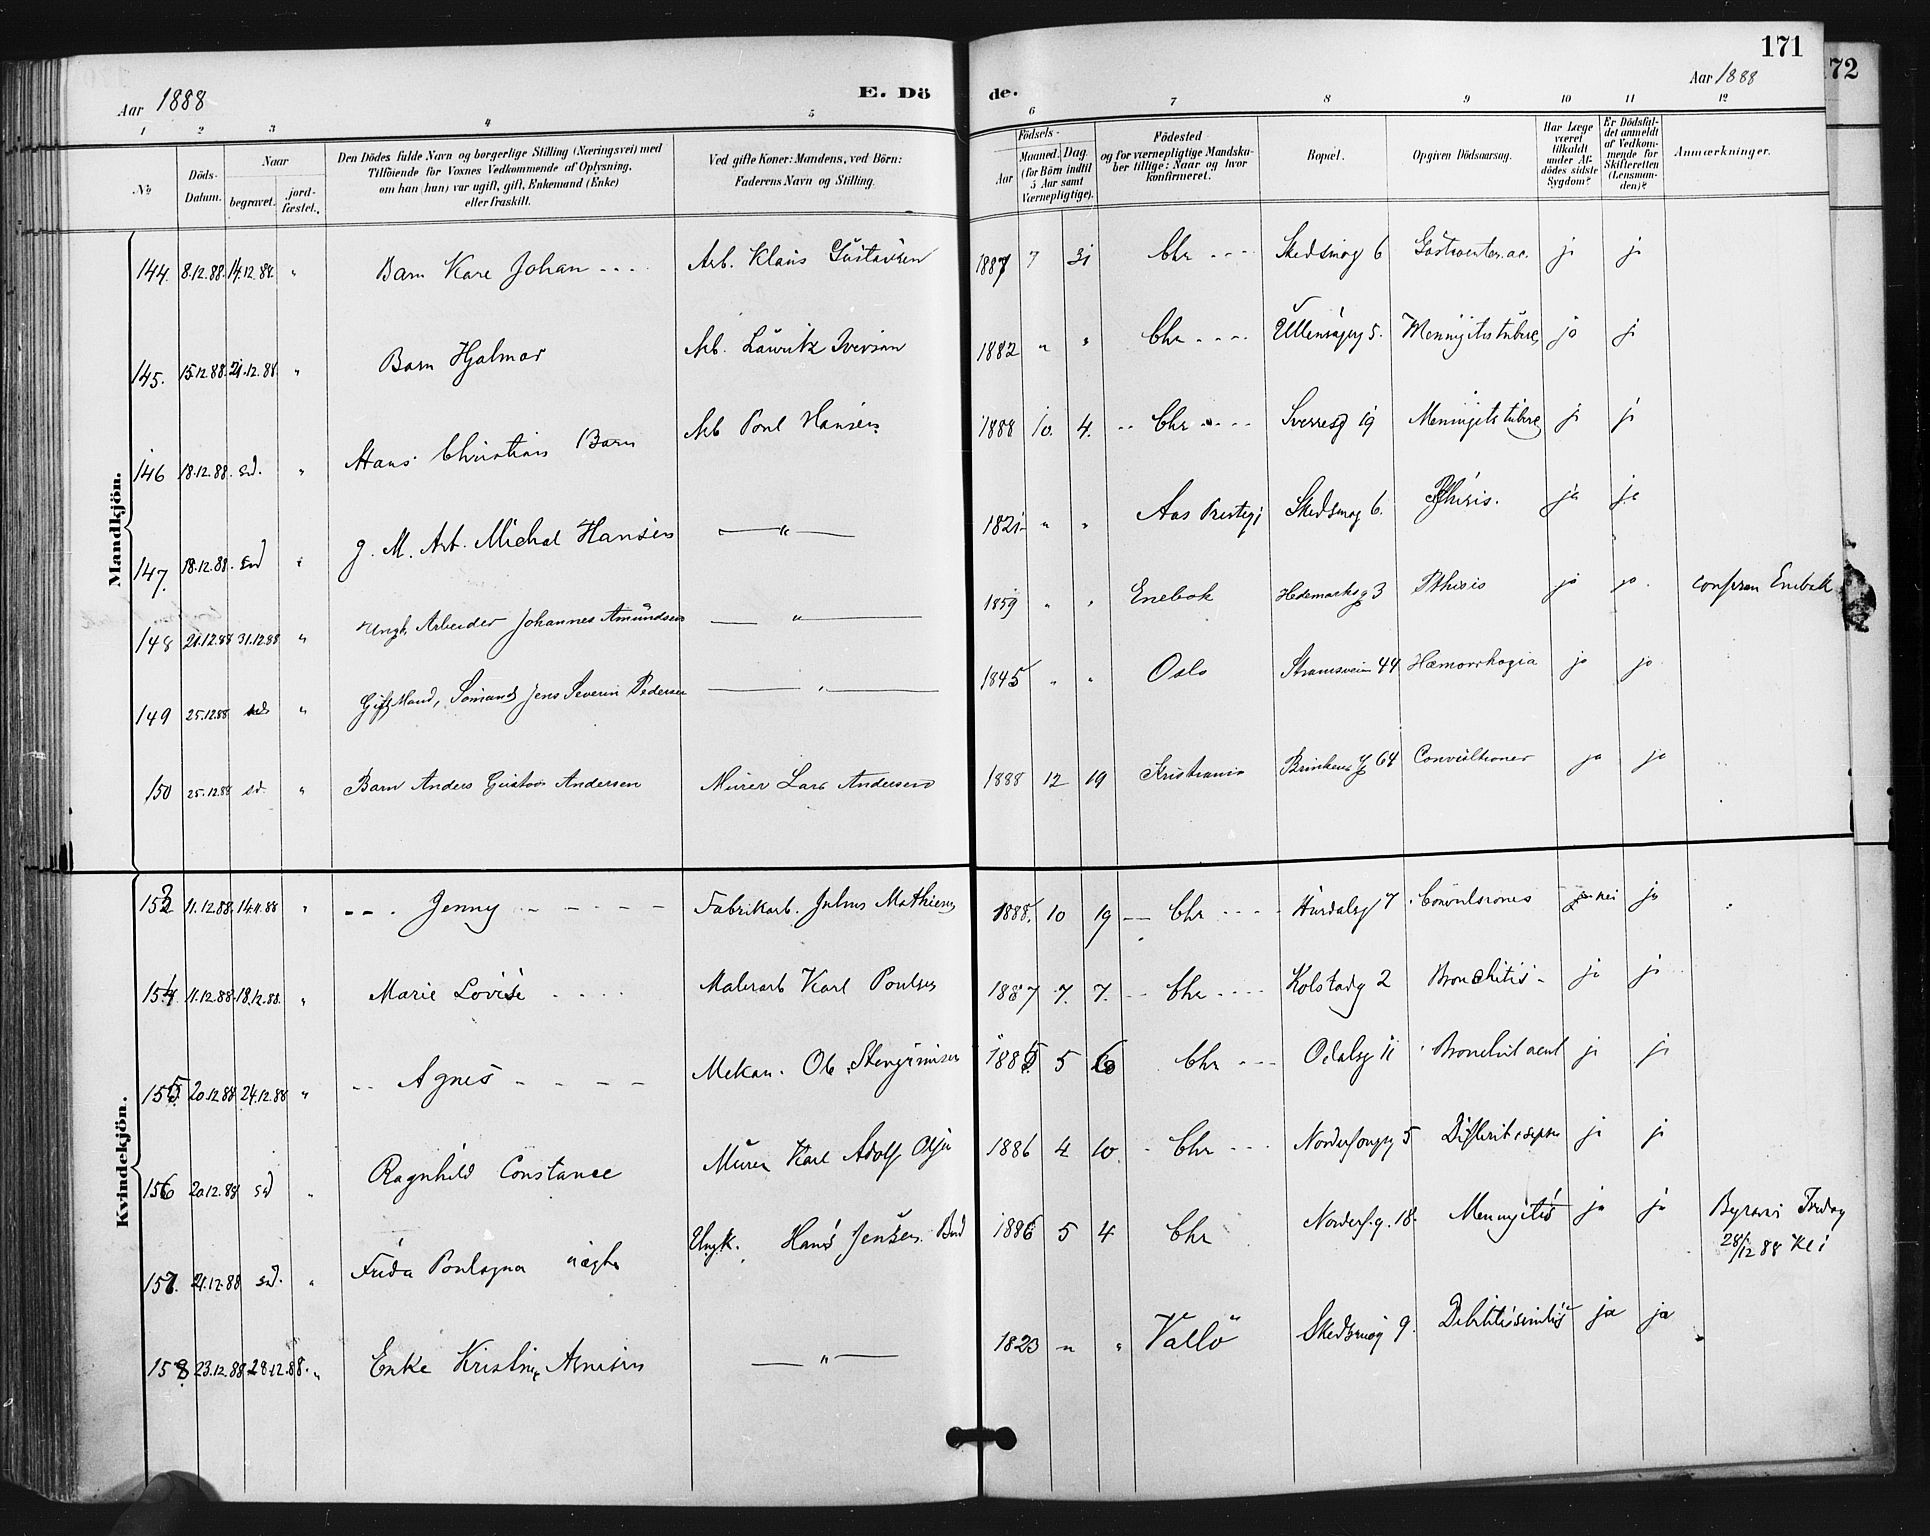 171
172
Aar 1888
E. Dö
de.
Aar 1888
1 2 3 4 5 6 7 8 9 10 11 12
No
Döds-Datum.
Naar
begravet.
jord-fæstet.
Den Dödes fulde Navn og borgerlige Stilling (Næringsvei) med
Tilföiende for Voxnes Vedkommende af Oplysning,
om han (hun) var ugift, gift, Enkemand (Enke)
eller fraskilt.
Ved gifte Koner: Mandens, ved Börn:
Faderens Navn og Stilling.
Födsels-
Aar
Maaned. Dag
(for Börn indtil
5 Aar samt
Værnepligtige).
Födested
og for værnepligtige Mandska-
ber tillige: Naar og hvor
konfirmeret.
Bopæl.
Opgiven Dödsaarsag.
Har Læge
været
tilkaldt
under Af-
dödes sidste
Sygdom?
Er Dödsfal-
det anmeldt
af Vedkom-
mende for
Skifteretten
(Lensman-
den)?
Anmærkninger.
Mandkjön.
144. 8.12.88 14.12.88 " Barn Kare Johan Arb. Klaus Gustavsen 1887 7 31 Chr Skedsmog 6 Gastroenter. ac. ja ja
145. 15.12.88. 21.12.88. " Barn Hjalmar Arb. Lauritz Iversen 1882 " " Chr Ullensagerg 5. Meningitis tuberc. ja ja
146 18.12.88. sd. " Hans Christian Barn Arb Poul Hansen 1888 10. 4. Chr Sverresg 19 Meningitis tuberc ja ja
147. 18.12.88. sd " g. M. Arb. Michal Hansen — " — 1821 " " Aas Prestegj Skedsmog 6. Pthisis. ja ja
148 21.12.88 31.12.88 " Ungk. Arbeider Johannes Amundsen — " — 1859 " " Enebak Hedemarksg 3 Pthisis ja ja. Enebak
149 25.12.88 sd " Gift Mand, Sömand Jens Severin Pedersen — " — 1845 " " Oslo Strømsveien 44 Hæmorrhagia ja ja
150 25.12.88 sd. " Barn Anders Gustav Andersen Murer Lars Andersen 1888 12 19 Kristiania Brinken 64 Convultioner ja ja
Kvindekjön.
152 11.12.88. 14.11.88 " Jenny Fabrikarb. Julius Mathiesen 1888. 10 19 Chr Hurdalsg 7 Convulsiones nei ja
154. 11.12.88. 18.12.88. " Marie Lovise Malerarb Karl Poulsen 1887 7. 7. Chr Kolstadg 2 Bronchitis ja ja
155. 20.12.88 24.12.88 " Agnes Mekan. Ole 1885 5 Chr Odalsg 11 Bronchit acut ja ja
156 20.12.88 sd " Ragnhild Constance Murer Karl Adolf 1886 4 10. Chr 5 Difterit ja ja
157. 21.12.88 sd. " Frida Poulagna uægte Ungk. Hans Jensen 1886 5 4 Chr 18. Meningitis ja ja
28/12 88
158 23.12.88 28.12.88. " Enke Kristine Arnesen — " — 1823 " " Vallö Skedsmog 9. ja ja